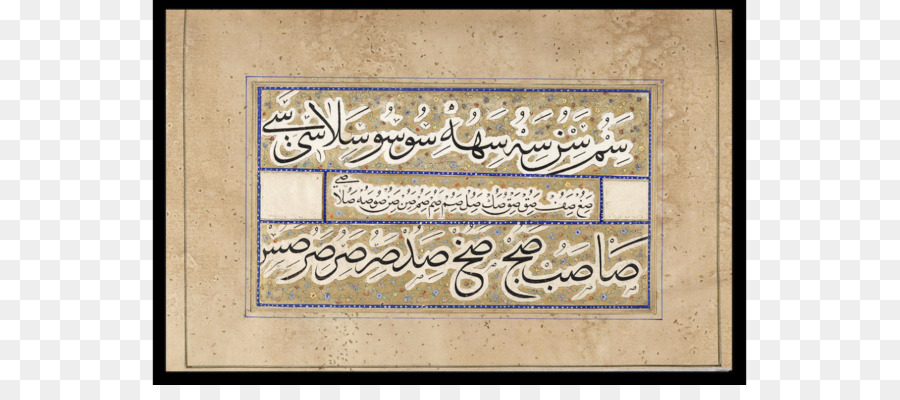 سَمْ سَنْ سَهْ سَهْ سُو سُو سَلا سى سے
صع صف صق صق صك صل صم صم صم صن صن صو صه صلا صى
صَا صَبْ صَحْ صَخْ صَدْ صَرْ صَرْ صَرْ صَسْ